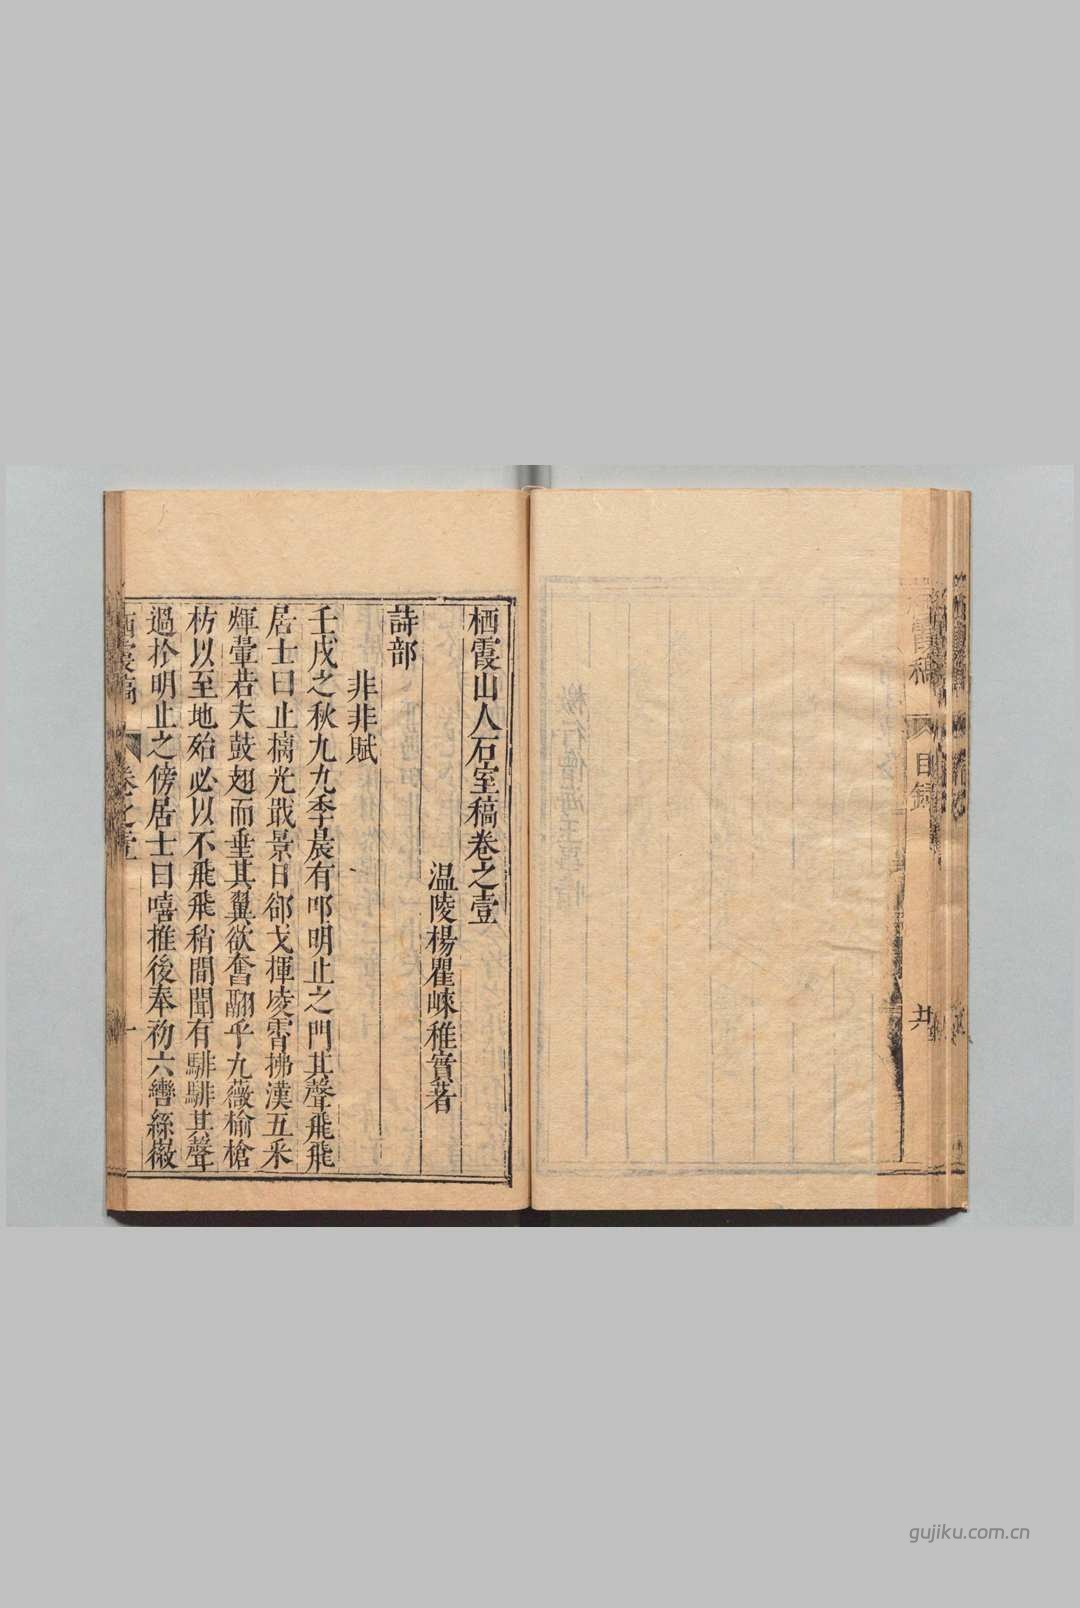 栖霞山人石室稿卷之壹
温陵楊瞿崍稚實著
詩部
非非賦
壬戌之秋九九季晨有叩明止之門其聲飛飛
居士曰止摛光戢景日郤戈揮凌霄拂漢五采
煇暈若夫鼓翅而垂其翼欲奮翮乎九薇榆槍
枋以至地殆必以不飛飛稍間聞有騑騑其聲
過於明止之傍居士曰嘻推後奉初六轡絲
栖霞稿
卷之壹
一
霞稿
目錄
gujiku.com.cn